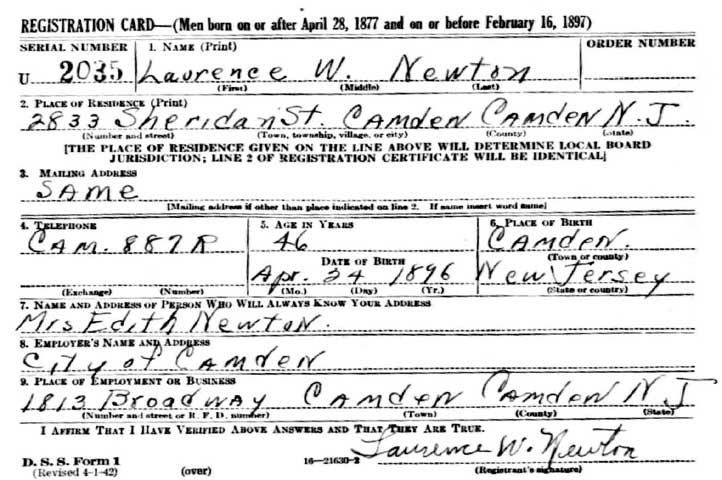 REGISTRATION CARD—(Men born on or after April 28, 1877 and on or before February 16, 1897)
SERIAL NUMBER 1. NAME (Print) ORDER NUMBER
U 2035 Laurence W. Newton
(First) (Middle) (Last)
2. PLACE OF RESIDENCE (Print)
2833 Sheridan St. Camden Camden N.J.
(Number and street) (Town, township, village, or city) (County) (State)
[THE PLACE OF RESIDENCE GIVEN ON THE LINE ABOVE WILL DETERMINE LOCAL BOARD
JURISDICTION; LINE 2 OF REGISTRATION CERTIFICATE WILL BE IDENTICAL]
3. MAILING ADDRESS
SAME
[Mailing address if other than place indicated on line 2. If same insert word same]
4. TELEPHONE 5. AGE IN YEARS 6. PLACE OF BIRTH
CAM. 887R 46 Camden.
DATE OF BIRTH (Town or county)
Apr. 24 1896 New Jersey
(Exchange) (Number) (Mo.) (Day) (Yr.) (State or country)
7. NAME AND ADDRESS OF PERSON WHO WILL ALWAYS KNOW YOUR ADDRESS
Mrs Edith Newton.
8. EMPLOYER'S NAME AND ADDRESS
City of Camden
9. PLACE OF EMPLOYMENT OR BUSINESS
1813 Broadway Camden Camden N J
(Number and street or R. F. D. number) (Town) (County) (State)
I AFFIRM THAT I HAVE VERIFIED ABOVE ANSWERS AND THAT THEY ARE TRUE.
Laurence W. Newton
D. S. S. Form 1 16—21630-2 (Registrant's signature)
(Revised 4-1-42) (over)